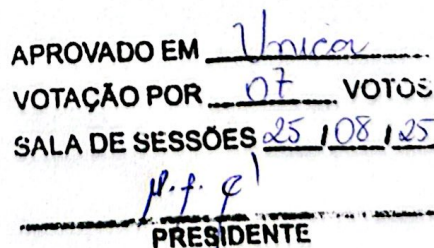 APROVADO EM Unica
VOTAÇÃO POR 07 VOTOS
SALA DE SESSÕES 25 / 08 / 25
PRESIDENTE